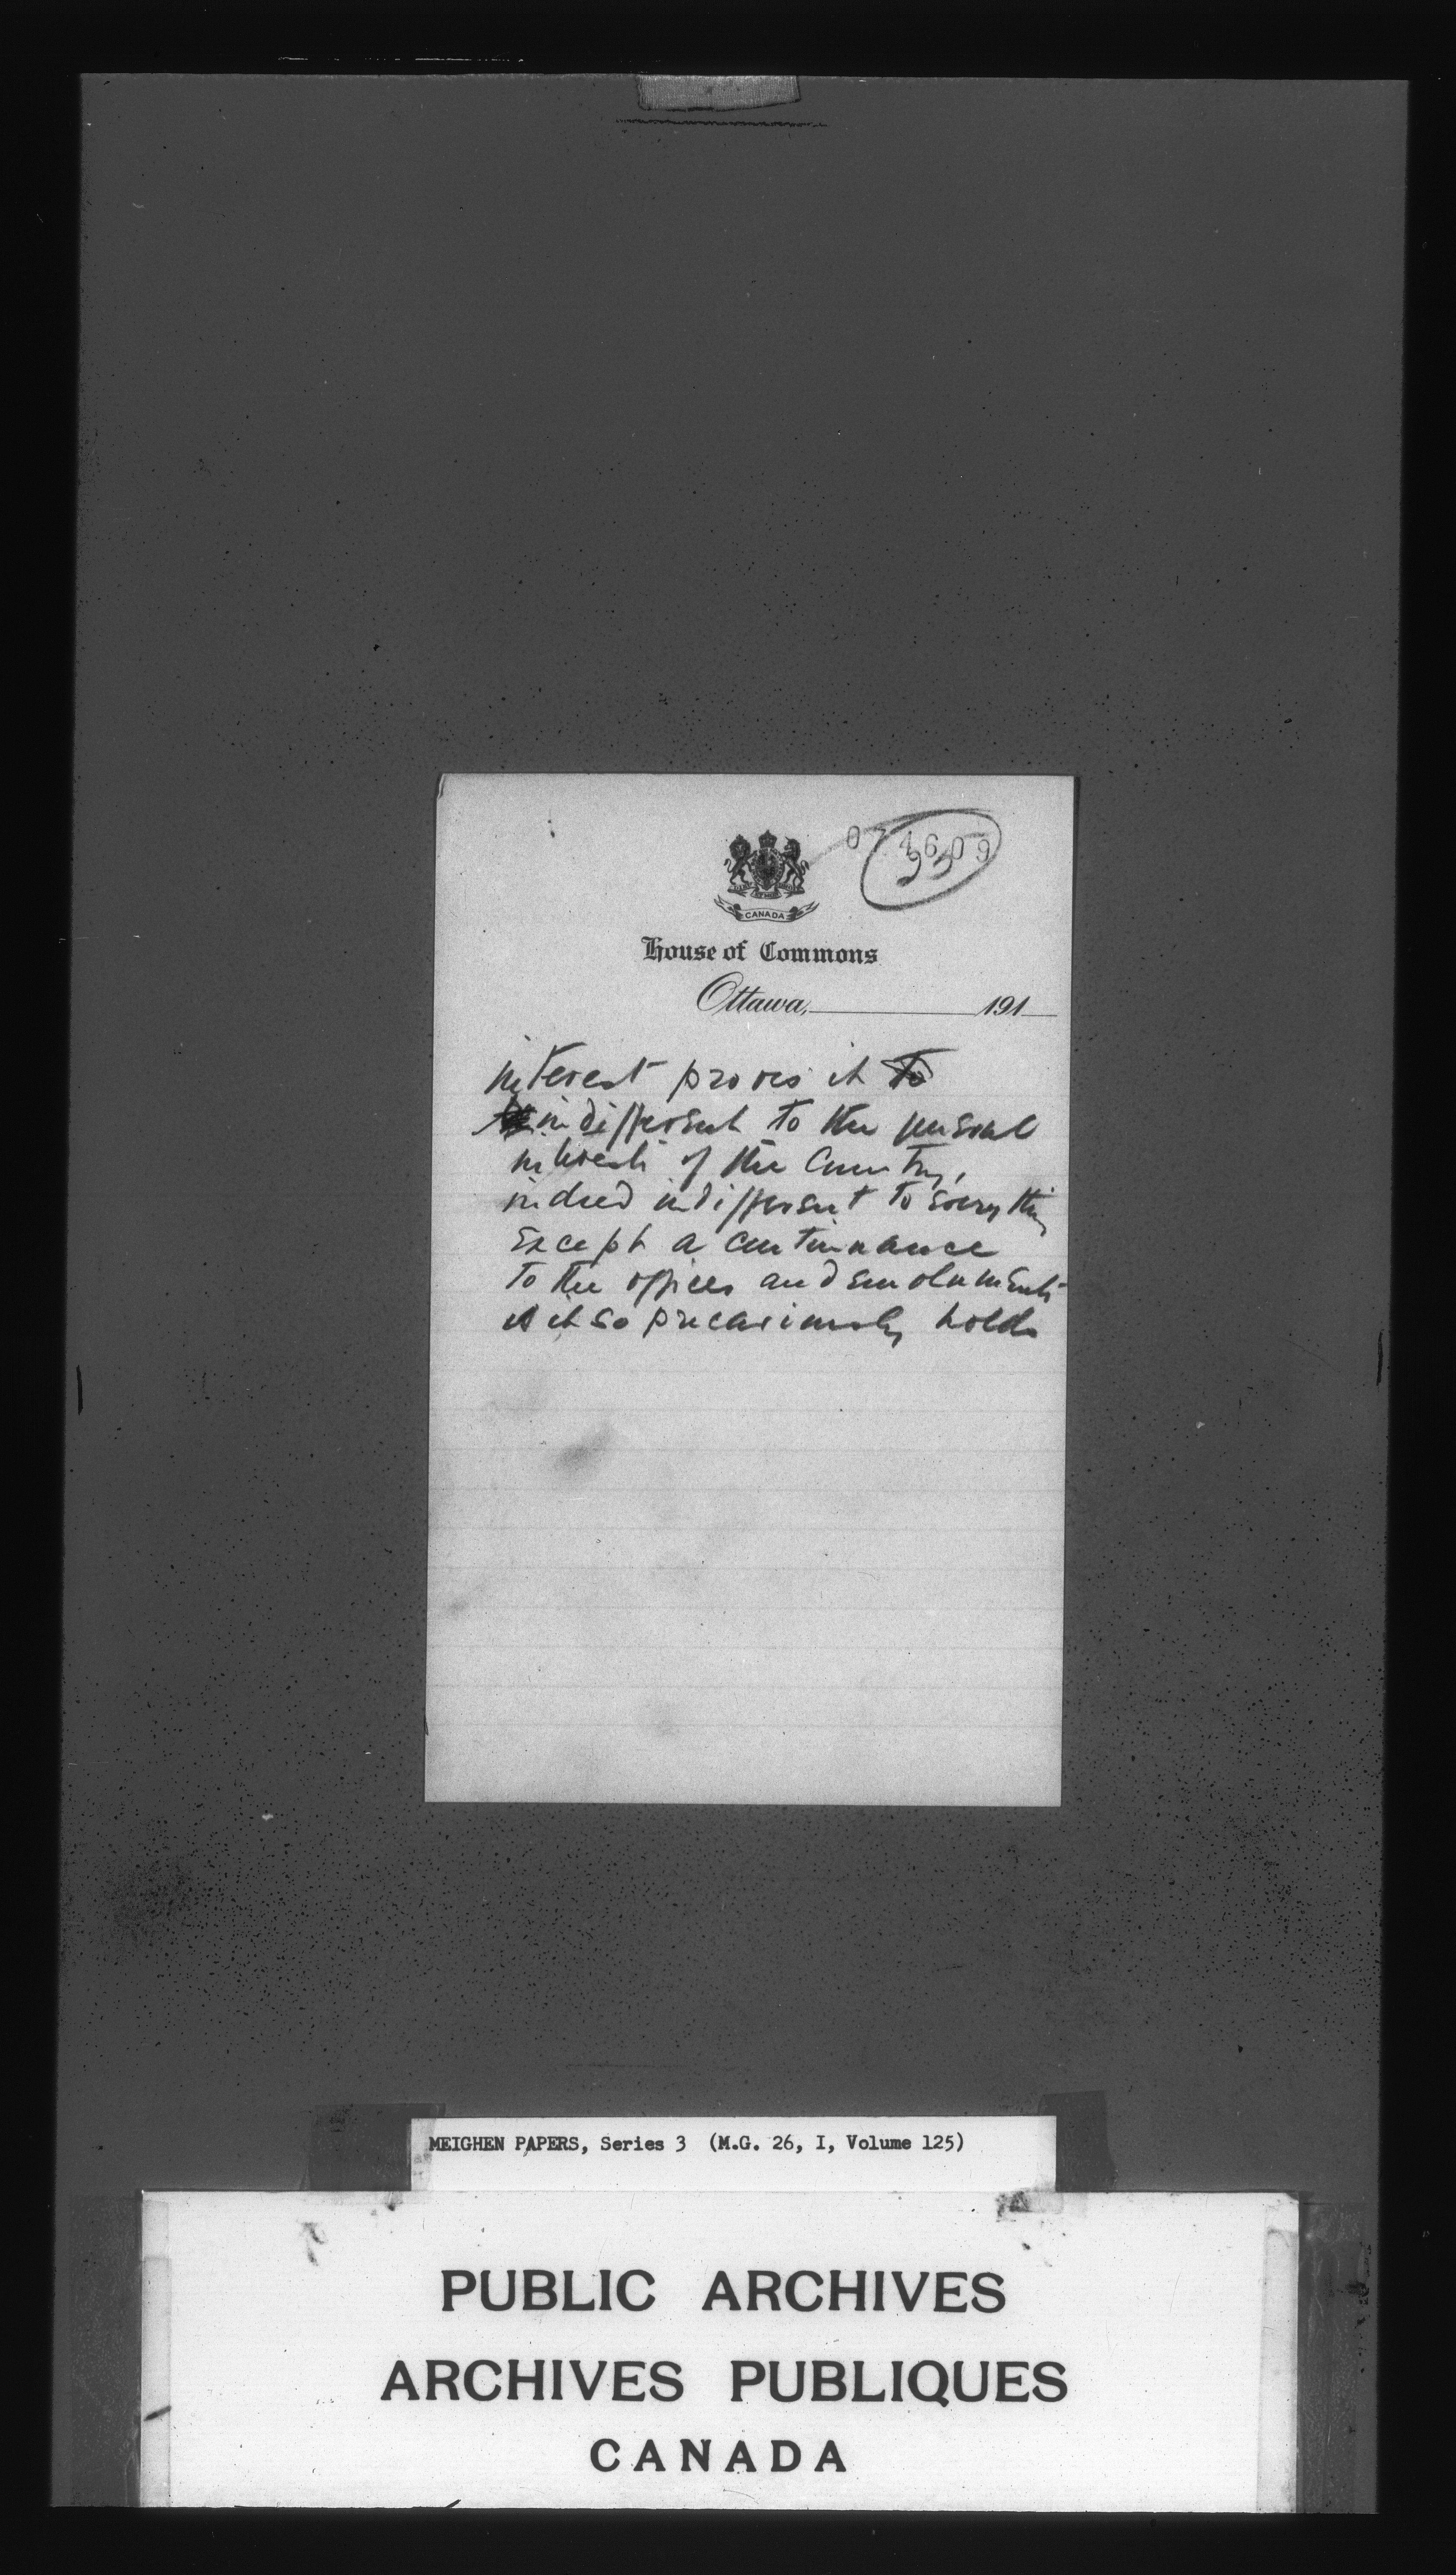 074609
CANADA
House of Commons
Ottawa, 191
interest proves it to
indifferent to the general
interests of the country,
indeed indifferent to everything
except a continuance
to the offices and emoluments
it so precariously holds
MEIGHEN PAPERS, Series 3 (M.G. 26, I, Volume 125)
PUBLIC ARCHIVES
ARCHIVES PUBLIQUES
CANADA